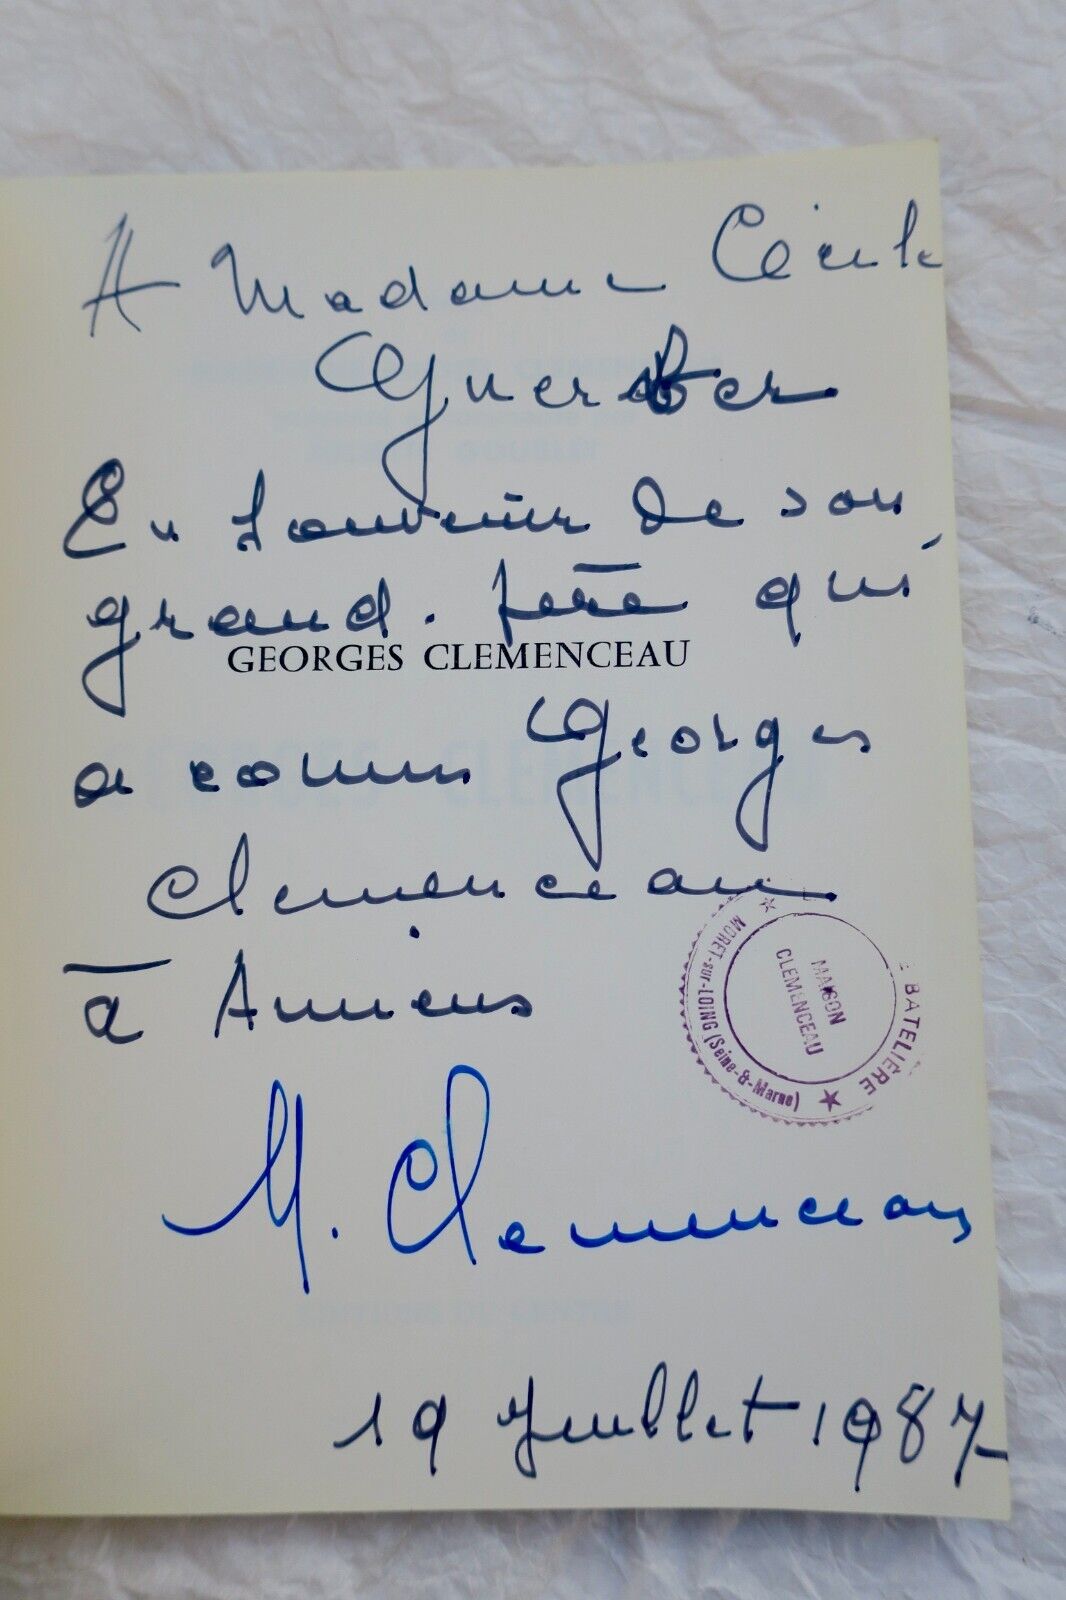 A Madame Cécile
Guerber
En souvenir de son
grand-père qui
GEORGES CLEMENCEAU
a connu Georges
Clemenceau
à Amiens
MAISON
CLEMENCEAU
BATELIÈRE
MORET-sur-LOING (Seine-&-Marne)
M. Clemenceau
19 Juillet 1987